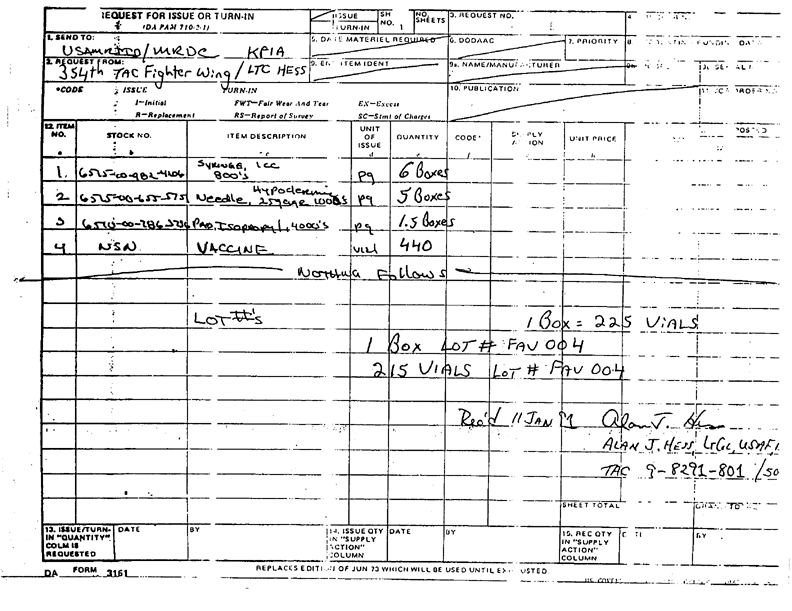 REQUEST FOR ISSUE OR TURN-IN
(DA PAM 710-2-1)
ISSUE
TURN-IN
SH NO. 1
NO. SHEETS
3. REQUEST NO.
4.
1. SEND TO:
USAMRIID/MRDC KPIA
5. DATE MATERIEL REQUIRED
6. DODAAC
7. PRIORITY
8.
2. REQUEST FROM:
354th TAC Fighter Wing/LTC HESS
9. END ITEM IDENT
9a. NAME/MANUFACTURER
10. PUBLICATION
*CODE
ISSUE
TURN-IN
I-Initial
FWT-Fair Wear And Tear
EX-Excess
R-Replacement
RS-Report of Survey
SC-Stmt of Charges
12. ITEM NO.
STOCK NO.
ITEM DESCRIPTION
UNIT OF ISSUE
QUANTITY
CODE*
SUPPLY ACTION
UNIT PRICE
POSTED
1. Syringe, 1cc 800's pg 6 Boxes
2 Needle, Hypodermic 25gage, 1000s pg 5 Boxes
3 Pad, Isopropyl, 4000's pg 1.5 Boxes
4 NSN VACCINE vial 440
Nothing Follows
LOT #'s
1 Box = 225 VIALS
1 Box LOT # FAV 004
215 VIALS LOT # FAV 004
Rec'd 11 JAN 91 Alan J. Hess
ALAN J. HESS, LtCol, USAF,
TAC 9-8291-801 /50
SHEET TOTAL
GRAND TO
13. ISSUE/TURN-IN "QUANTITY" COLM IS REQUESTED
DATE
BY
14. ISSUE QTY IN "SUPPLY ACTION" COLUMN
DATE
BY
15. REC QTY IN "SUPPLY ACTION" COLUMN
BY
DA FORM 3161
REPLACES EDITION OF JUN 73 WHICH WILL BE USED UNTIL EXHAUSTED